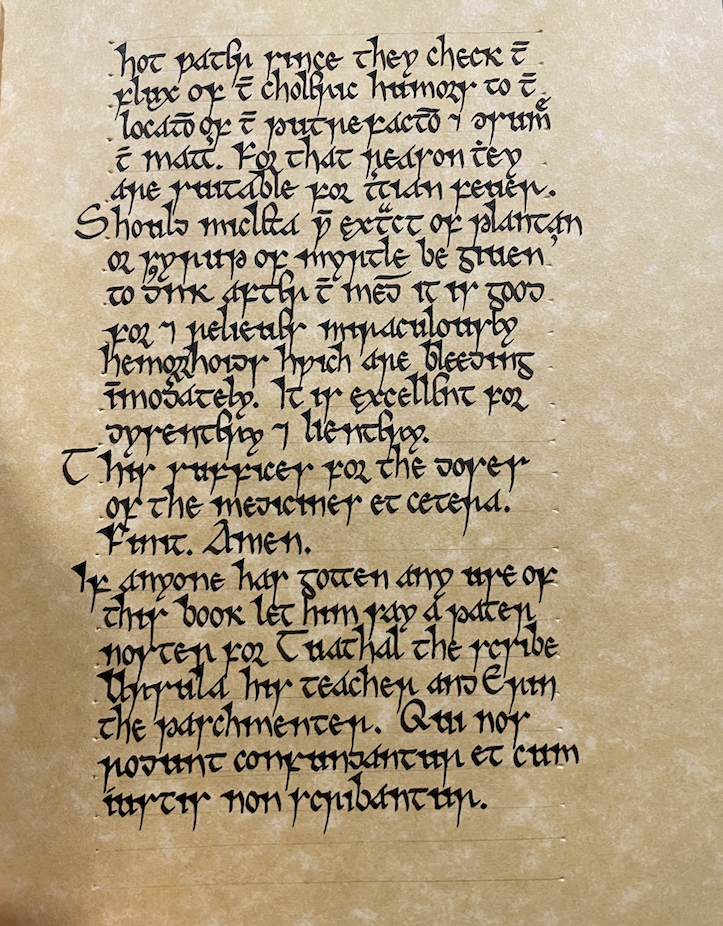 hot path̄ since they check t̄
flux of t̄ cholɐic humors to t̄
locatō of t̄ putrefactō ⁊ drum̄
t̄ matt̄. For that reason tͤey
are suitable for t̄tian feuer.
Should micleta ẏ ext̄ct of plantan
or syrup of myrtle be giuen
to dͥnk after t̄ med̄ it is good
for ⁊ relieues miraculously
hemorrhoids hƿich are bleeding
im̄odͥately. It is excellent for
dysentery ⁊ lientery.
This suffices for the doses
of the medicines et cetera.
Finit. Amen.
If anyone has gotten any use of
this book let him say a pater
noster for Tuathal the scribe
Ursula his teacher and Erin
the parchmenter. Qui nos
rodunt confundantur et cum
iustis non scribantur.